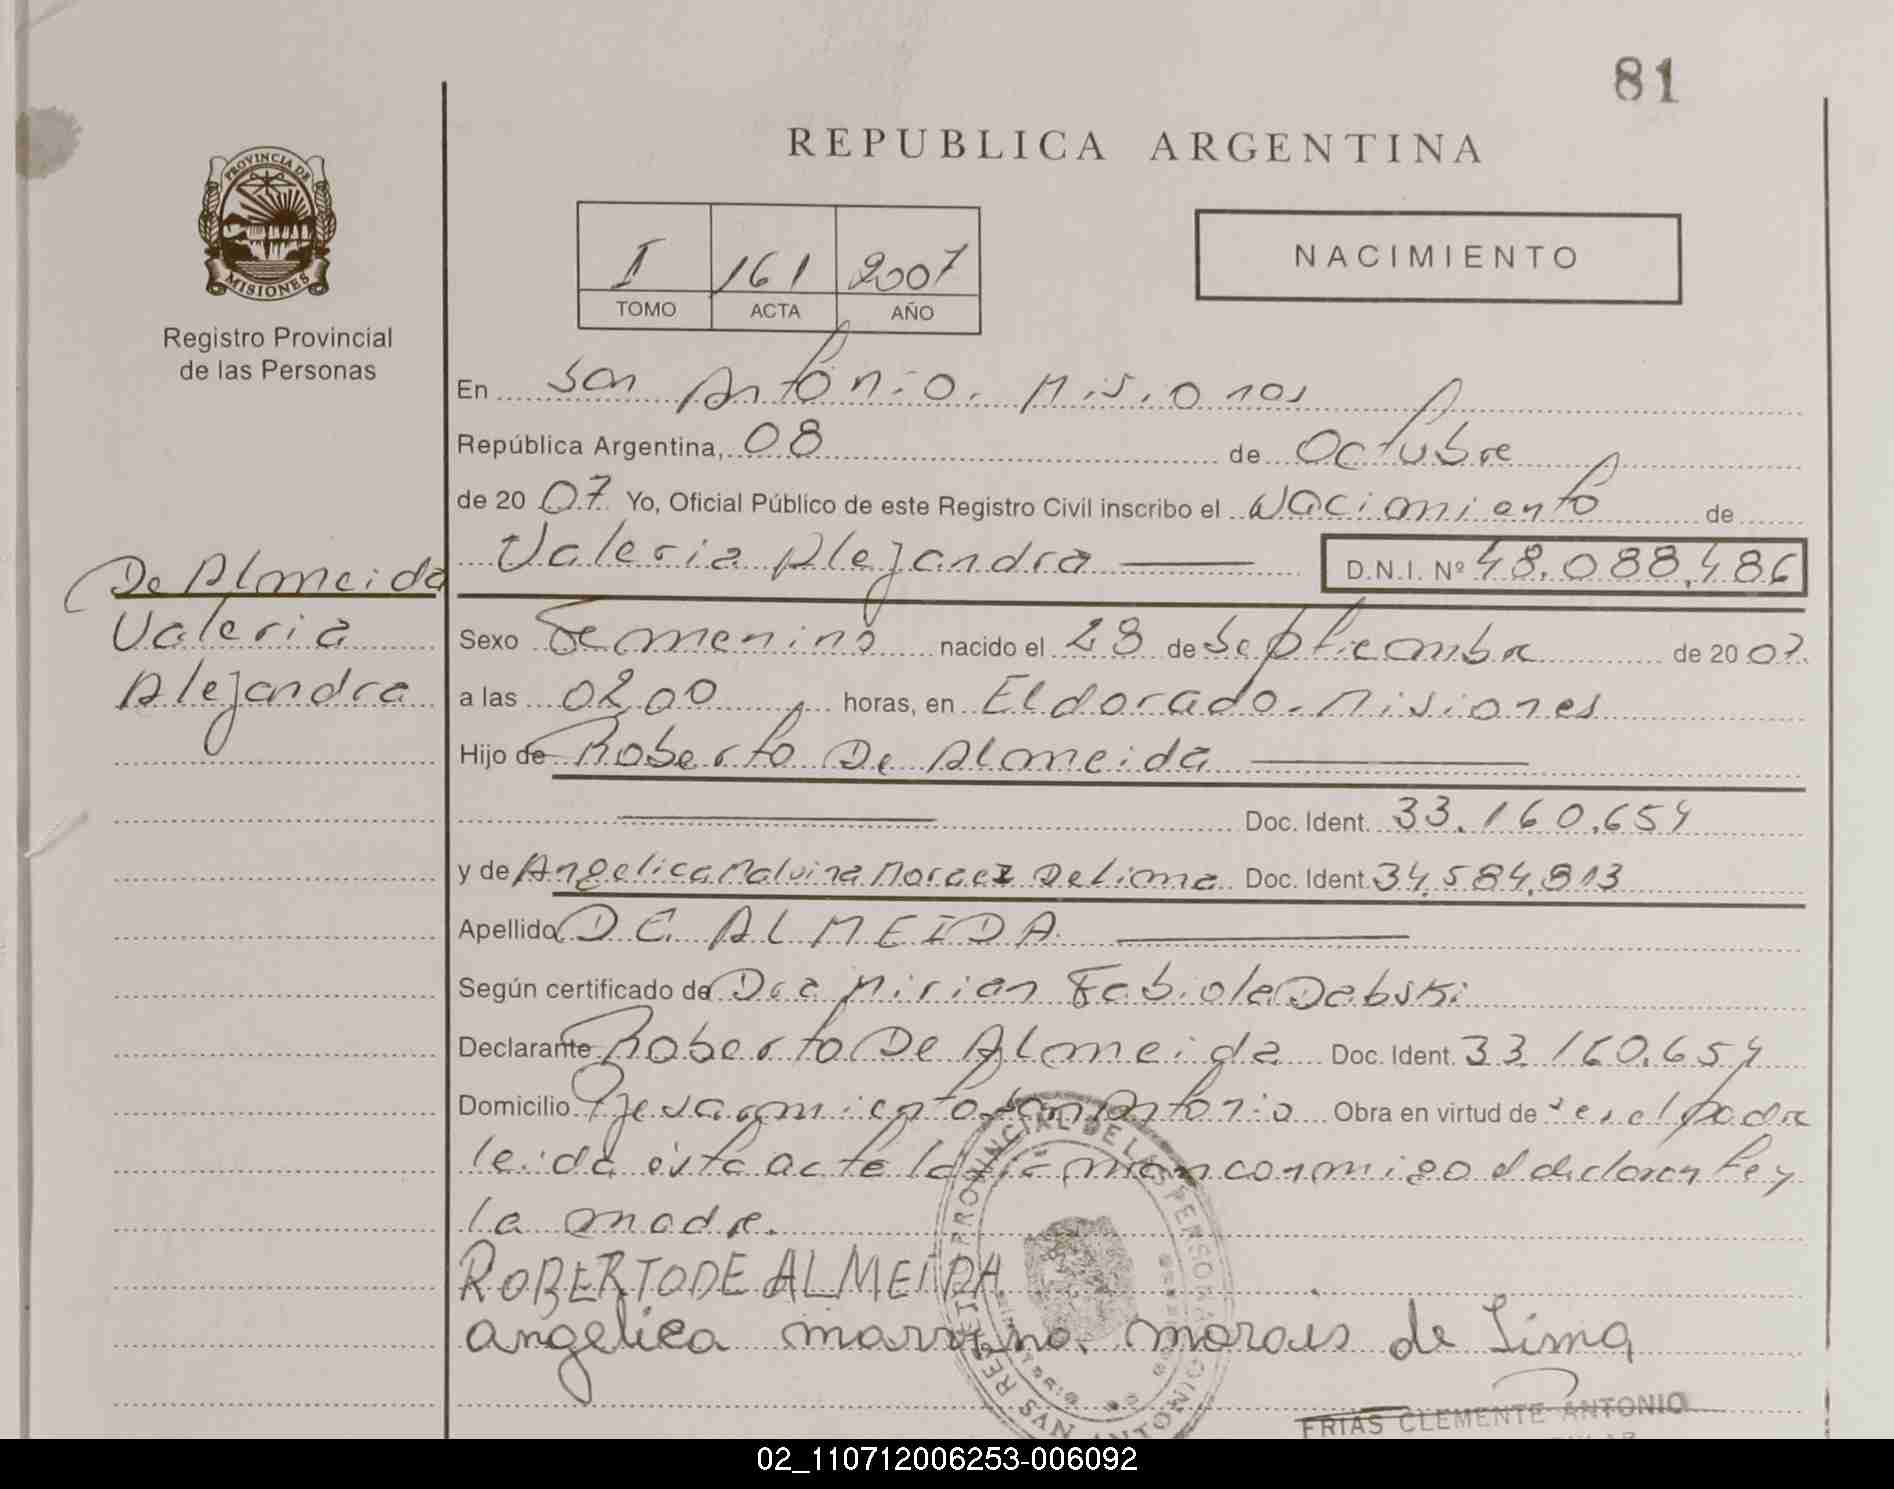 81
REPUBLICA ARGENTINA
PROVINCIA DE
MISIONES
Registro Provincial
de las Personas
I 161 2007
TOMO ACTA AÑO
NACIMIENTO
En San Antonio. Misiones
República Argentina, 08 de Octubre
de 20 07 Yo, Oficial Público de este Registro Civil inscribo el Nacimiento de
Valeria Alejandra D.N.I. Nº 48.088.486
De Almeida
Valeria
Alejandra
Sexo Femenino nacido el 28 de Septiembre de 20 07.
a las 02,00 horas, en Eldorado. Misiones
Hijo de Roberto De Almeida
Doc. Ident. 33.160.654
y de Angelica Malvina Moraez De Lima Doc. Ident. 34.584.813
Apellido DE ALMEIDA
Según certificado de Dra Mirian Fabiola Dabski
Declarante Roberto De Almeida Doc. Ident. 33.160.654
Domicilio San Antonio Obra en virtud de ser el padre
leida esta acta la firman conmigo el declarante y
la madre.
ROBERTO DE ALMEIDA
angelica morais de Lima
REGISTRO PROVINCIAL DE LAS PERSONAS
SAN ANTONIO
FRIAS CLEMENTE ANTONIO
02_110712006253-006092